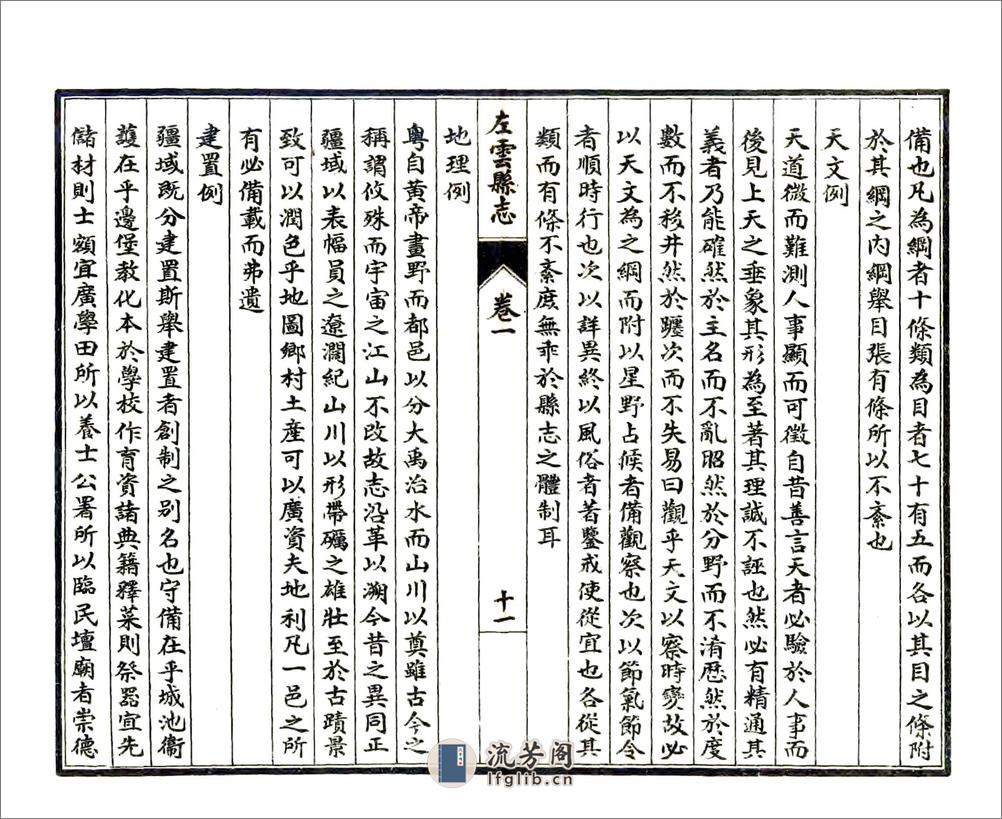 備也凡為綱者十條類為目者七十有五而各以其目之條附
於其綱之內綱舉目張有條所以不紊也
天文例
天道微而難測人事顯而可徵自昔善言天者必驗於人事而
後見上天之垂象其形為至著其理誠不誣也然必有精通其
義者乃能確然於主名而不亂昭然於分野而不淆歷然於度
數而不移井然於躔次而不失易曰觀乎天文以察時變故必
以天文為之綱而附以星野占候者備觀察也次以節氣節令
者順時行也次以詳異終以風俗者著鑒戒使從宜也各從其
類而有條不紊度無乖於縣志之體制耳
左雲縣志
卷一
十一
地理例
粵自黃帝畫野而都邑以分大禹治水而山川以奠雖古今之
稱謂攸殊而宇宙之江山不改故志沿革以溯今昔之異同正
疆域以表幅員之遼濶紀山川以形帶礪之雄壯至於古蹟景
致可以潤色乎地圖鄉村土産可以廣資夫地利凡一邑之所
有必備載而弗遺
建置例
疆域既分建置斯舉建置者創制之别名也守備在乎城池衞
護在乎邊堡教化本於學校作育資諸典籍釋菜則祭器宜先
儲材則士額宜廣學田所以養士公署所以臨民壇廟者崇德
流芳阁
lfglib.cn